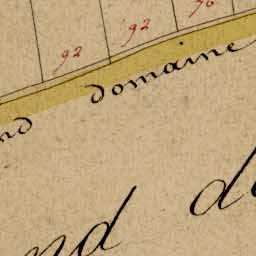 92
92
nd domaine
nd d